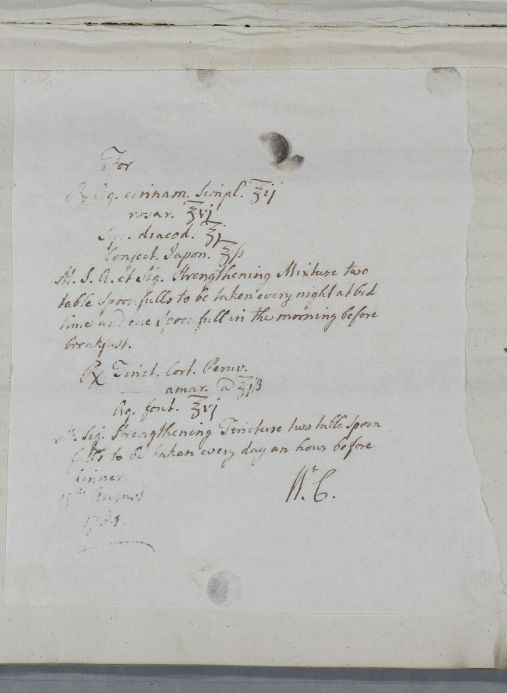 For
℞ Aq. cinnam. Simpl. ℥ij
rosar. ℥vj
Syr. diacod. ℥j
Confect. Japon. ℥ß
M. S. A. et Sig. Strengthening Mixture two
table spoonfulls to be taken every night at bed
time and one spoonfull in the morning before
breakfast.
℞ Tinct. Cort. Peruv.
amar. a ℥jß
Aq. font. ℥vj
M. Sig. Strengthening Tincture two table spoon
fulls to be taken every day an hour before
dinner.
August
Wm C.